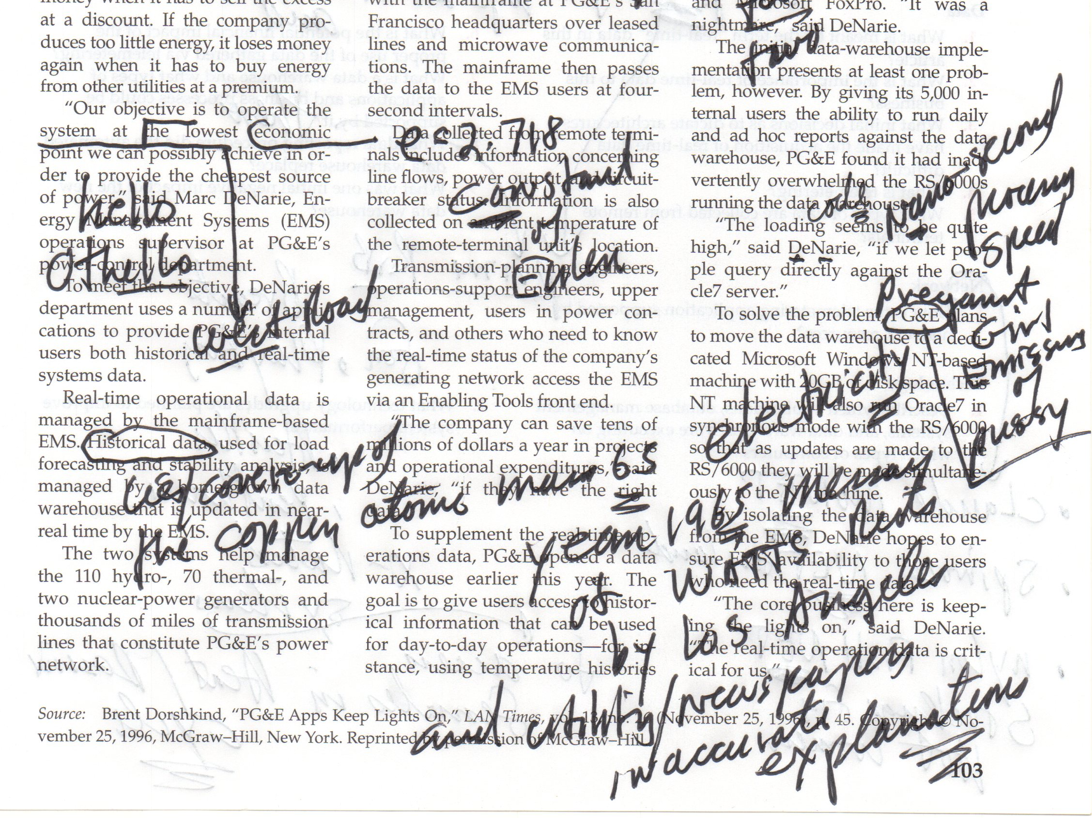 money when it has to sell the excess
at a discount. If the company pro-
duces too little energy, it loses money
again when it has to buy energy
from other utilities at a premium.
"Our objective is to operate the
system at the lowest economic
point we can possibly achieve in or-
der to provide the cheapest source
of power," said Marc DeNarie, En-
ergy Management Systems (EMS)
operations supervisor at PG&E's
power-control department.
To meet that objective, DeNarie's
department uses a number of appli-
cations to provide PG&E's internal
users both historical and real-time
systems data.
Real-time operational data is
managed by the mainframe-based
EMS. Historical data, used for load
forecasting and stability analysis, is
managed by a homegrown data
warehouse that is updated in near-
real time by the EMS.
The two systems help manage
the 110 hydro-, 70 thermal-, and
two nuclear-power generators and
thousands of miles of transmission
lines that constitute PG&E's power
network.
with the mainframe at PG&E's San
Francisco headquarters over leased
lines and microwave communica-
tions. The mainframe then passes
the data to the EMS users at four-
second intervals.
Data collected from remote termi-
nals includes information concerning
line flows, power output and circuit-
breaker status. Information is also
collected on ambient temperature of
the remote-terminal unit's location.
Transmission-planning engineers,
operations-support engineers, upper
management, users in power con-
tracts, and others who need to know
the real-time status of the company's
generating network access the EMS
via an Enabling Tools front end.
"The company can save tens of
millions of dollars a year in projects
and operational expenditures," said
DeNarie, "if they have the right
data."
To supplement the real-time op-
erations data, PG&E opened a data
warehouse earlier this year. The
goal is to give users access to histor-
ical information that can be used
for day-to-day operations—for in-
stance, using temperature histories
and Microsoft FoxPro. "It was a
nightmare," said DeNarie.
The initial data-warehouse imple-
mentation presents at least one prob-
lem, however. By giving its 5,000 in-
ternal users the ability to run daily
and ad hoc reports against the data
warehouse, PG&E found it had inad-
vertently overwhelmed the RS/6000s
running the data warehouse.
"The loading seems to be quite
high," said DeNarie, "if we let peo-
ple query directly against the Ora-
cle7 server."
To solve the problem, PG&E plans
to move the data warehouse to a dedi-
cated Microsoft Windows NT-based
machine with 20GB of disk space. This
NT machine will also run Oracle7 in
synchronous mode with the RS/6000
so that as updates are made to the
RS/6000 they will be made simultane-
ously to the NT machine.
By isolating the data warehouse
from the EMS, DeNarie hopes to en-
sure EMS availability to those users
who need the real-time data.
"The core business here is keep-
ing the lights on," said DeNarie.
"The real-time operation data is crit-
ical for us."
Source: Brent Dorshkind, "PG&E Apps Keep Lights On," LAN Times, vol. 13, no. (November 25, 1996), p. 45. Copyright © No-
vember 25, 1996, McGraw–Hill, New York. Reprinted by permission of McGraw–Hill.
103
e = 2.718
Constant
of
Euler
Hello
load
Nano second
speed
Pregnant
Girl
of
pussy
electricity
copper atomic mass 65
year 1965
of Watts
by Los Angeles
and newspapers
inaccurate
explanations